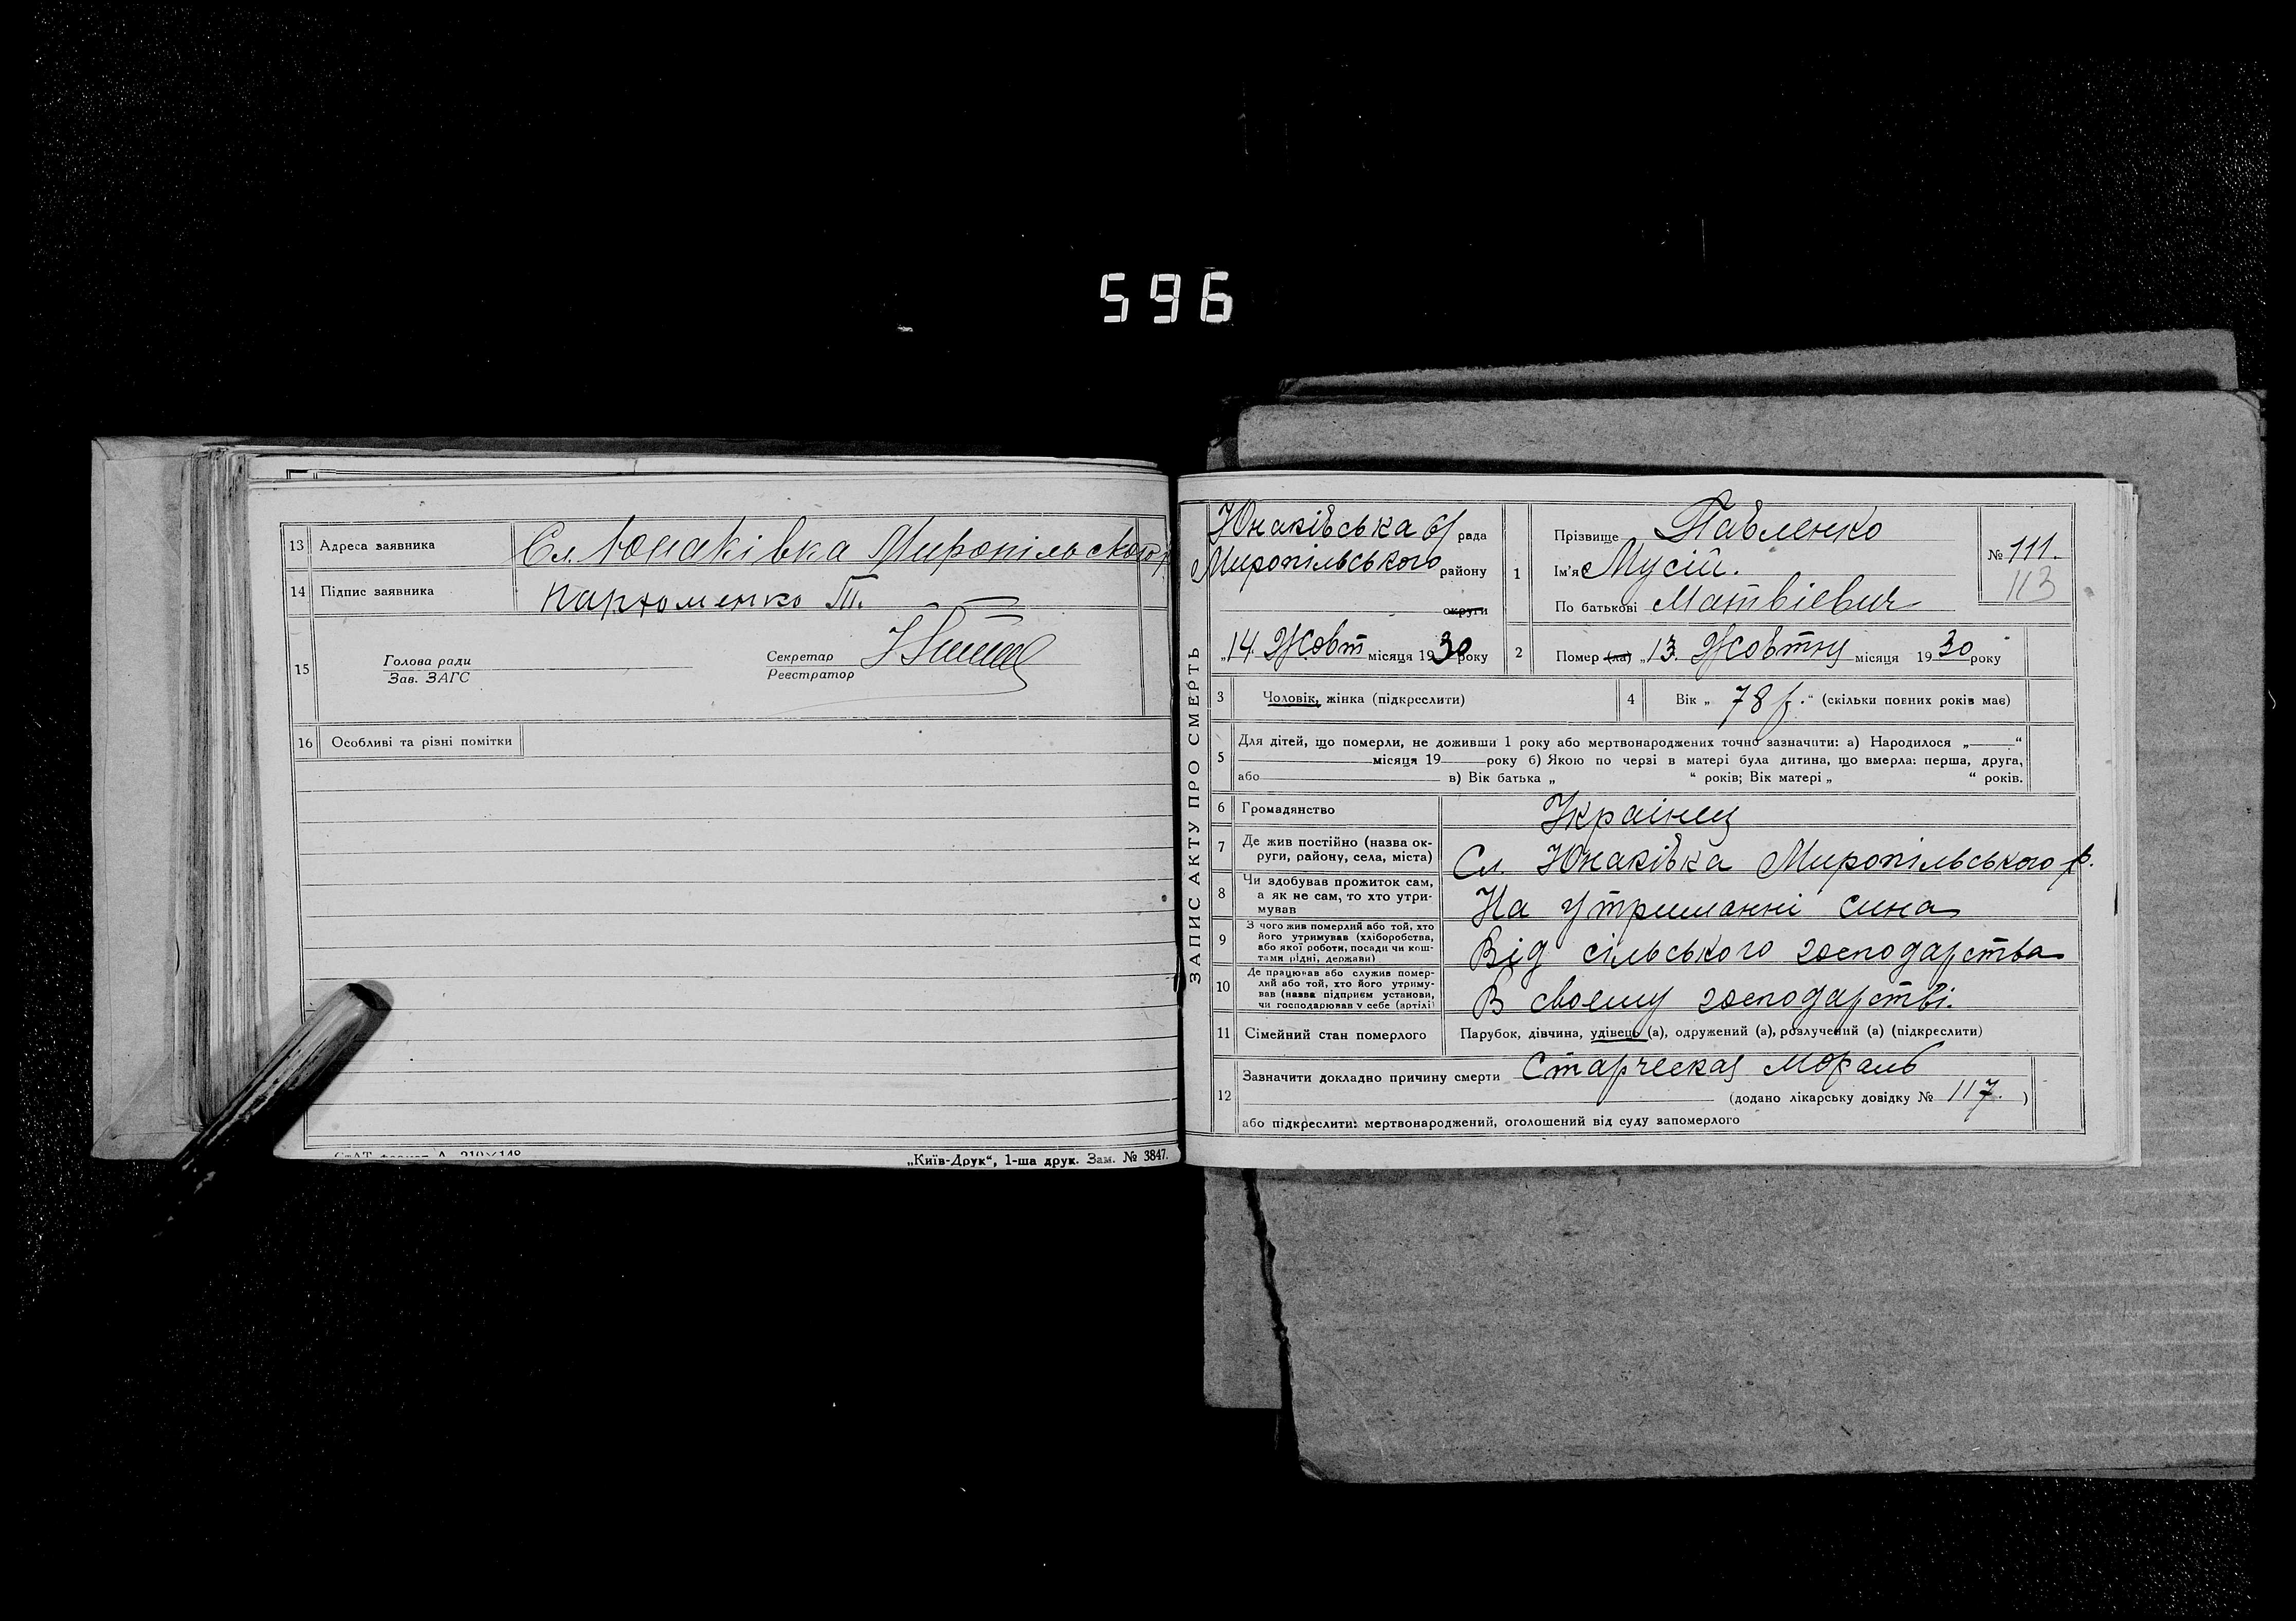 596
13 Адреса заявника Сл. Юнаківка Миропільського р
14 Підпис заявника Пархоменко П.
15 Голова ради
Зав. ЗАГС
Секретар
Реєстратор
16 Особливі та різні помітки
„Київ-Друк“, 1-ша друк. Зам. № 3847.
ЗАПИС АКТУ ПРО СМЕРТЬ
Юнаківська с/ рада
Миропільського району
округи
„14. Жовт місяця 1930 року
1 Прізвище Павленко
Ім'я Мусій.
По батькові Матвієвич
№ 111.
113
2 Помер (ла) „13. Жовтня місяця 1930 року
3 Чоловік, жінка (підкреслити)
4 Вік „ 78 р. “ (скільки повних років має)
5 Для дітей, що померли, не доживши 1 року або мертвонароджених точно зазначити: а) Народилося „ “
місяця 19 року б) Якою по черзі в матері була дитина, що вмерла: перша, друга,
або в) Вік батька „ “ років; Вік матері „ “ років.
6 Громадянство Українец
7 Де жив постійно (назва ок-
руги, району, села, міста) Сл. Юнаківка Миропільського р.
8 Чи здобував прожиток сам,
а як не сам, то хто утри-
мував На утриманні сина
9 З чого жив померлий або той, хто
його утримував (хліборобства,
або якої роботи, посади чи кош-
тами рідні, держави) Від сільського господарства
10 Де працював або служив помер-
лий або той, хто його утриму-
вав (назва підприєм установи,
чи господарював у себе (артілі) В своєму господарстві.
11 Сімейний стан померлого Парубок, дівчина, удівець (а), одружений (а), розлучений (а) (підкреслити)
12 Зазначити докладно причину смерти Старческая
(додано лікарську довідку № 117. )
або підкреслити: мертвонароджений, оголошений від суду запомерлого